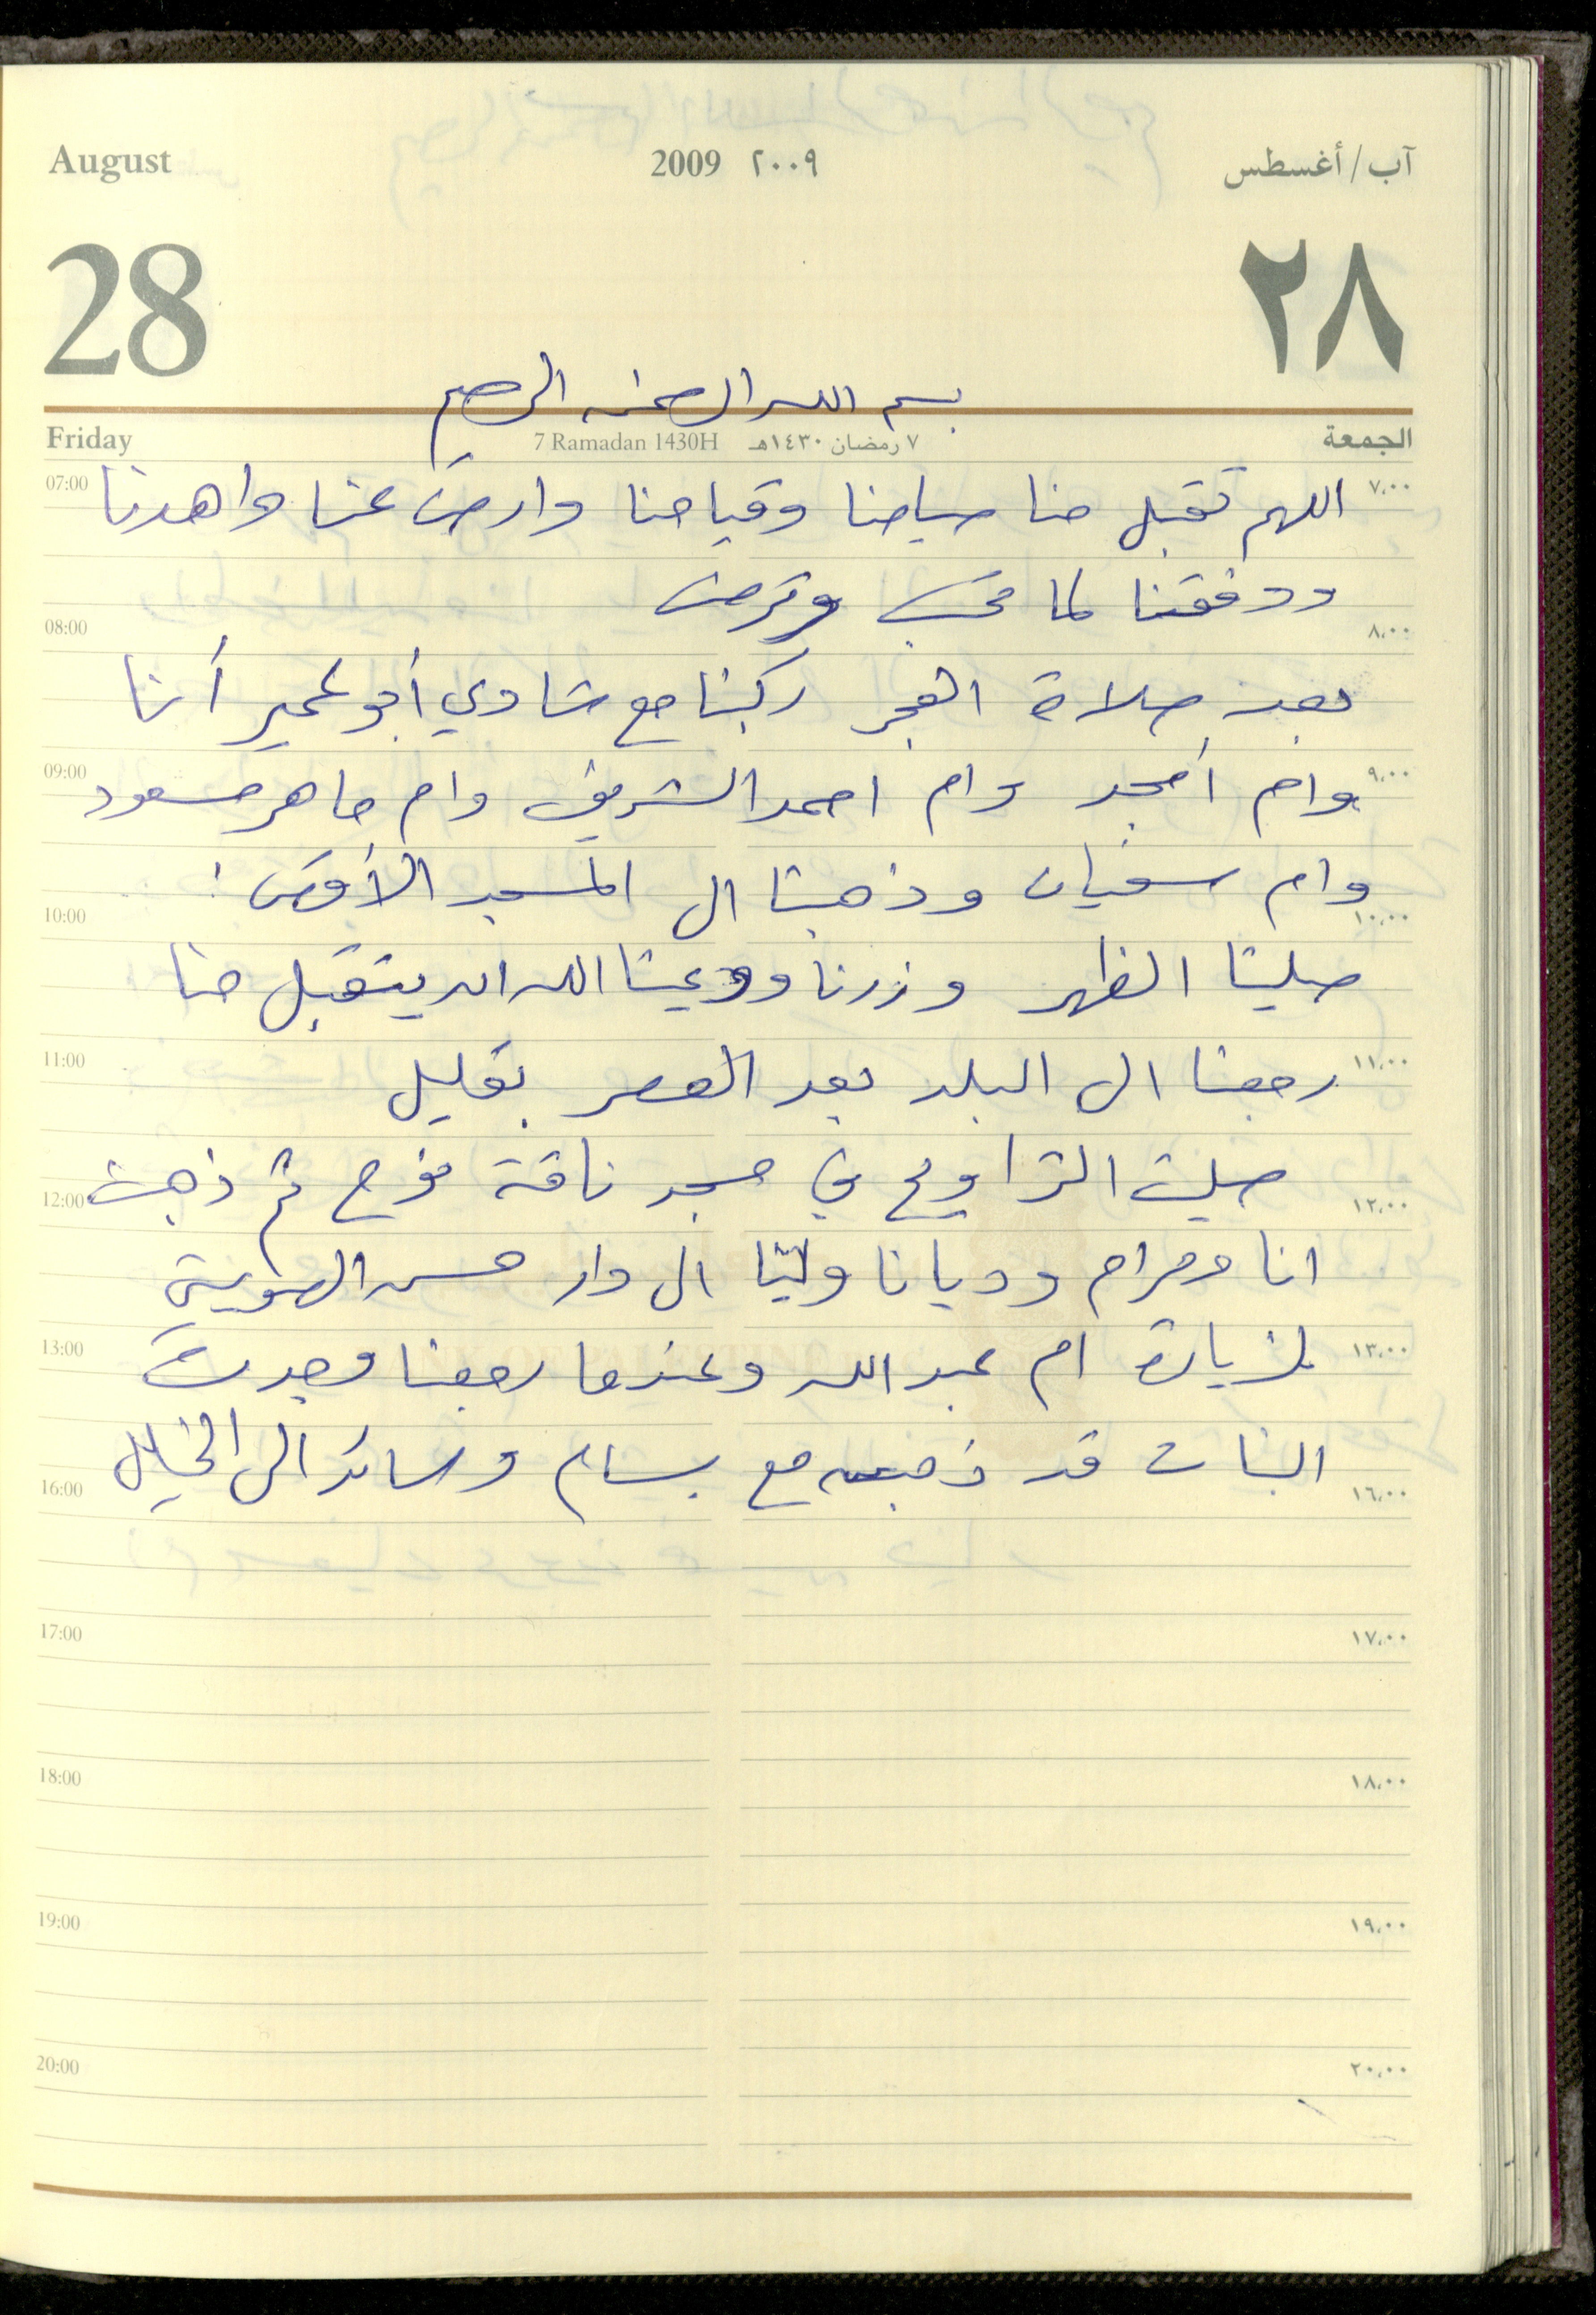 August 2009 ٢٠٠٩ آب/أغسطس
28 ٢٨
بسم الله الرحمن الرحيم
Friday 7 Ramadan 1430H ٧ رمضان ١٤٣٠هـ الجمعة
07:00 اللهم تقبل منا صيامنا وقيامنا وارض عنا واهدنا ٧،٠٠
ووفقنا لما تحب وترضى
08:00 ٨،٠٠
بعد صلاة الفجر ركبنا مع شادي أبو عمير أنا
09:00 وام أمجد وام احمد الشريف وام ماهر مسعود ٩،٠٠
وام سفيان وذهبنا الى المسجد الأقصى :
10:00 ١٠،٠٠
صلينا الظهر وزرنا ودعينا الله ان يتقبل منا
11:00 رجعنا الى البلد بعد العصر بقليل ١١،٠٠
12:00 صليت التراويح في مسجد ناقة نوح ثم ذهبت ١٢،٠٠
انا ومرام وديانا ولينا الى دار حسن
13:00 لزيارة ام عبد الله وعندما رجعنا وجدت ١٣،٠٠
16:00 البنات قد ذهبن مع بسام وسائد الى الخليل ١٦،٠٠
17:00 ١٧،٠٠
18:00 ١٨،٠٠
19:00 ١٩،٠٠
20:00 ٢٠،٠٠